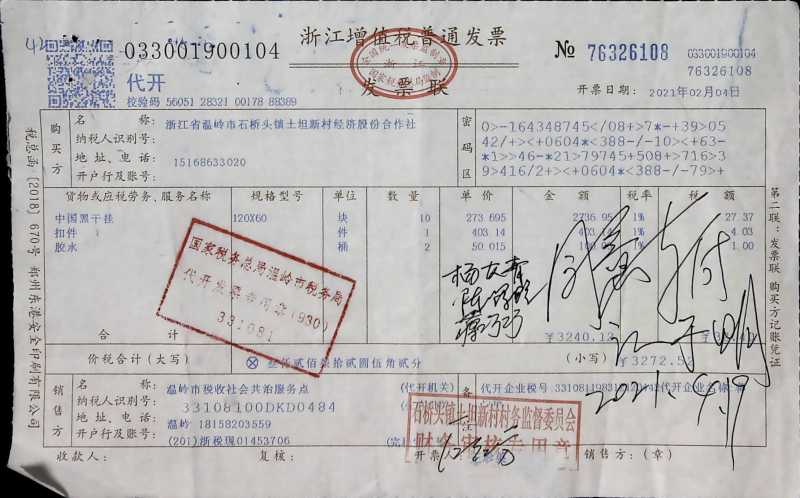 033001900104
浙江增值税普通发票
№ 76326108
033001900104
76326108
代开
发票联
校验码 56051 28321 00178 88389
开票日期: 2021年02月04日
购买方
名称: 浙江省温岭市石桥头镇土坦新村经济股份合作社
纳税人识别号:
地址、电话: 15168633020
开户行及账号:
密码区
0>-164348745</08+>7*-+39>05
42/+><+0604*<388-/-10><+63-
*1>>46-*21>79745+508+>716>3
9>416/2+><+0604*<388-/-79>+
货物或应税劳务、服务名称 规格型号 单位 数量 单价 金额 税率 税额
中国黑干挂 120X60 块 10 273.695 2736.95 1% 27.37
扣件 件 1 403.14 403.14 1% 4.03
胶水 桶 2 50.015 1% 1.00
国家税务总局温岭市税务局
代开发票专用章(930)
331081
同意支付
2021.4.9
合计 ¥3240.12
价税合计(大写) ⊗ 叁仟贰佰柒拾贰圆伍角贰分 (小写) ¥3272.52
销售方
名称: 温岭市税收社会共治服务点 (代开机关)
纳税人识别号: 33108100DKD0484
地址、电话: 温岭 18158203559
开户行及账号: (201)浙税现01453706
备
代开企业税号
代开企业名称:
石桥头镇土坦新村村务监督委员会
财务审核专用章
收款人: 复核: 开票人: 销售方:(章)
税总函〔2018〕670号 郑州东港安全印刷有限公司
第二联:发票联 购买方记账凭证